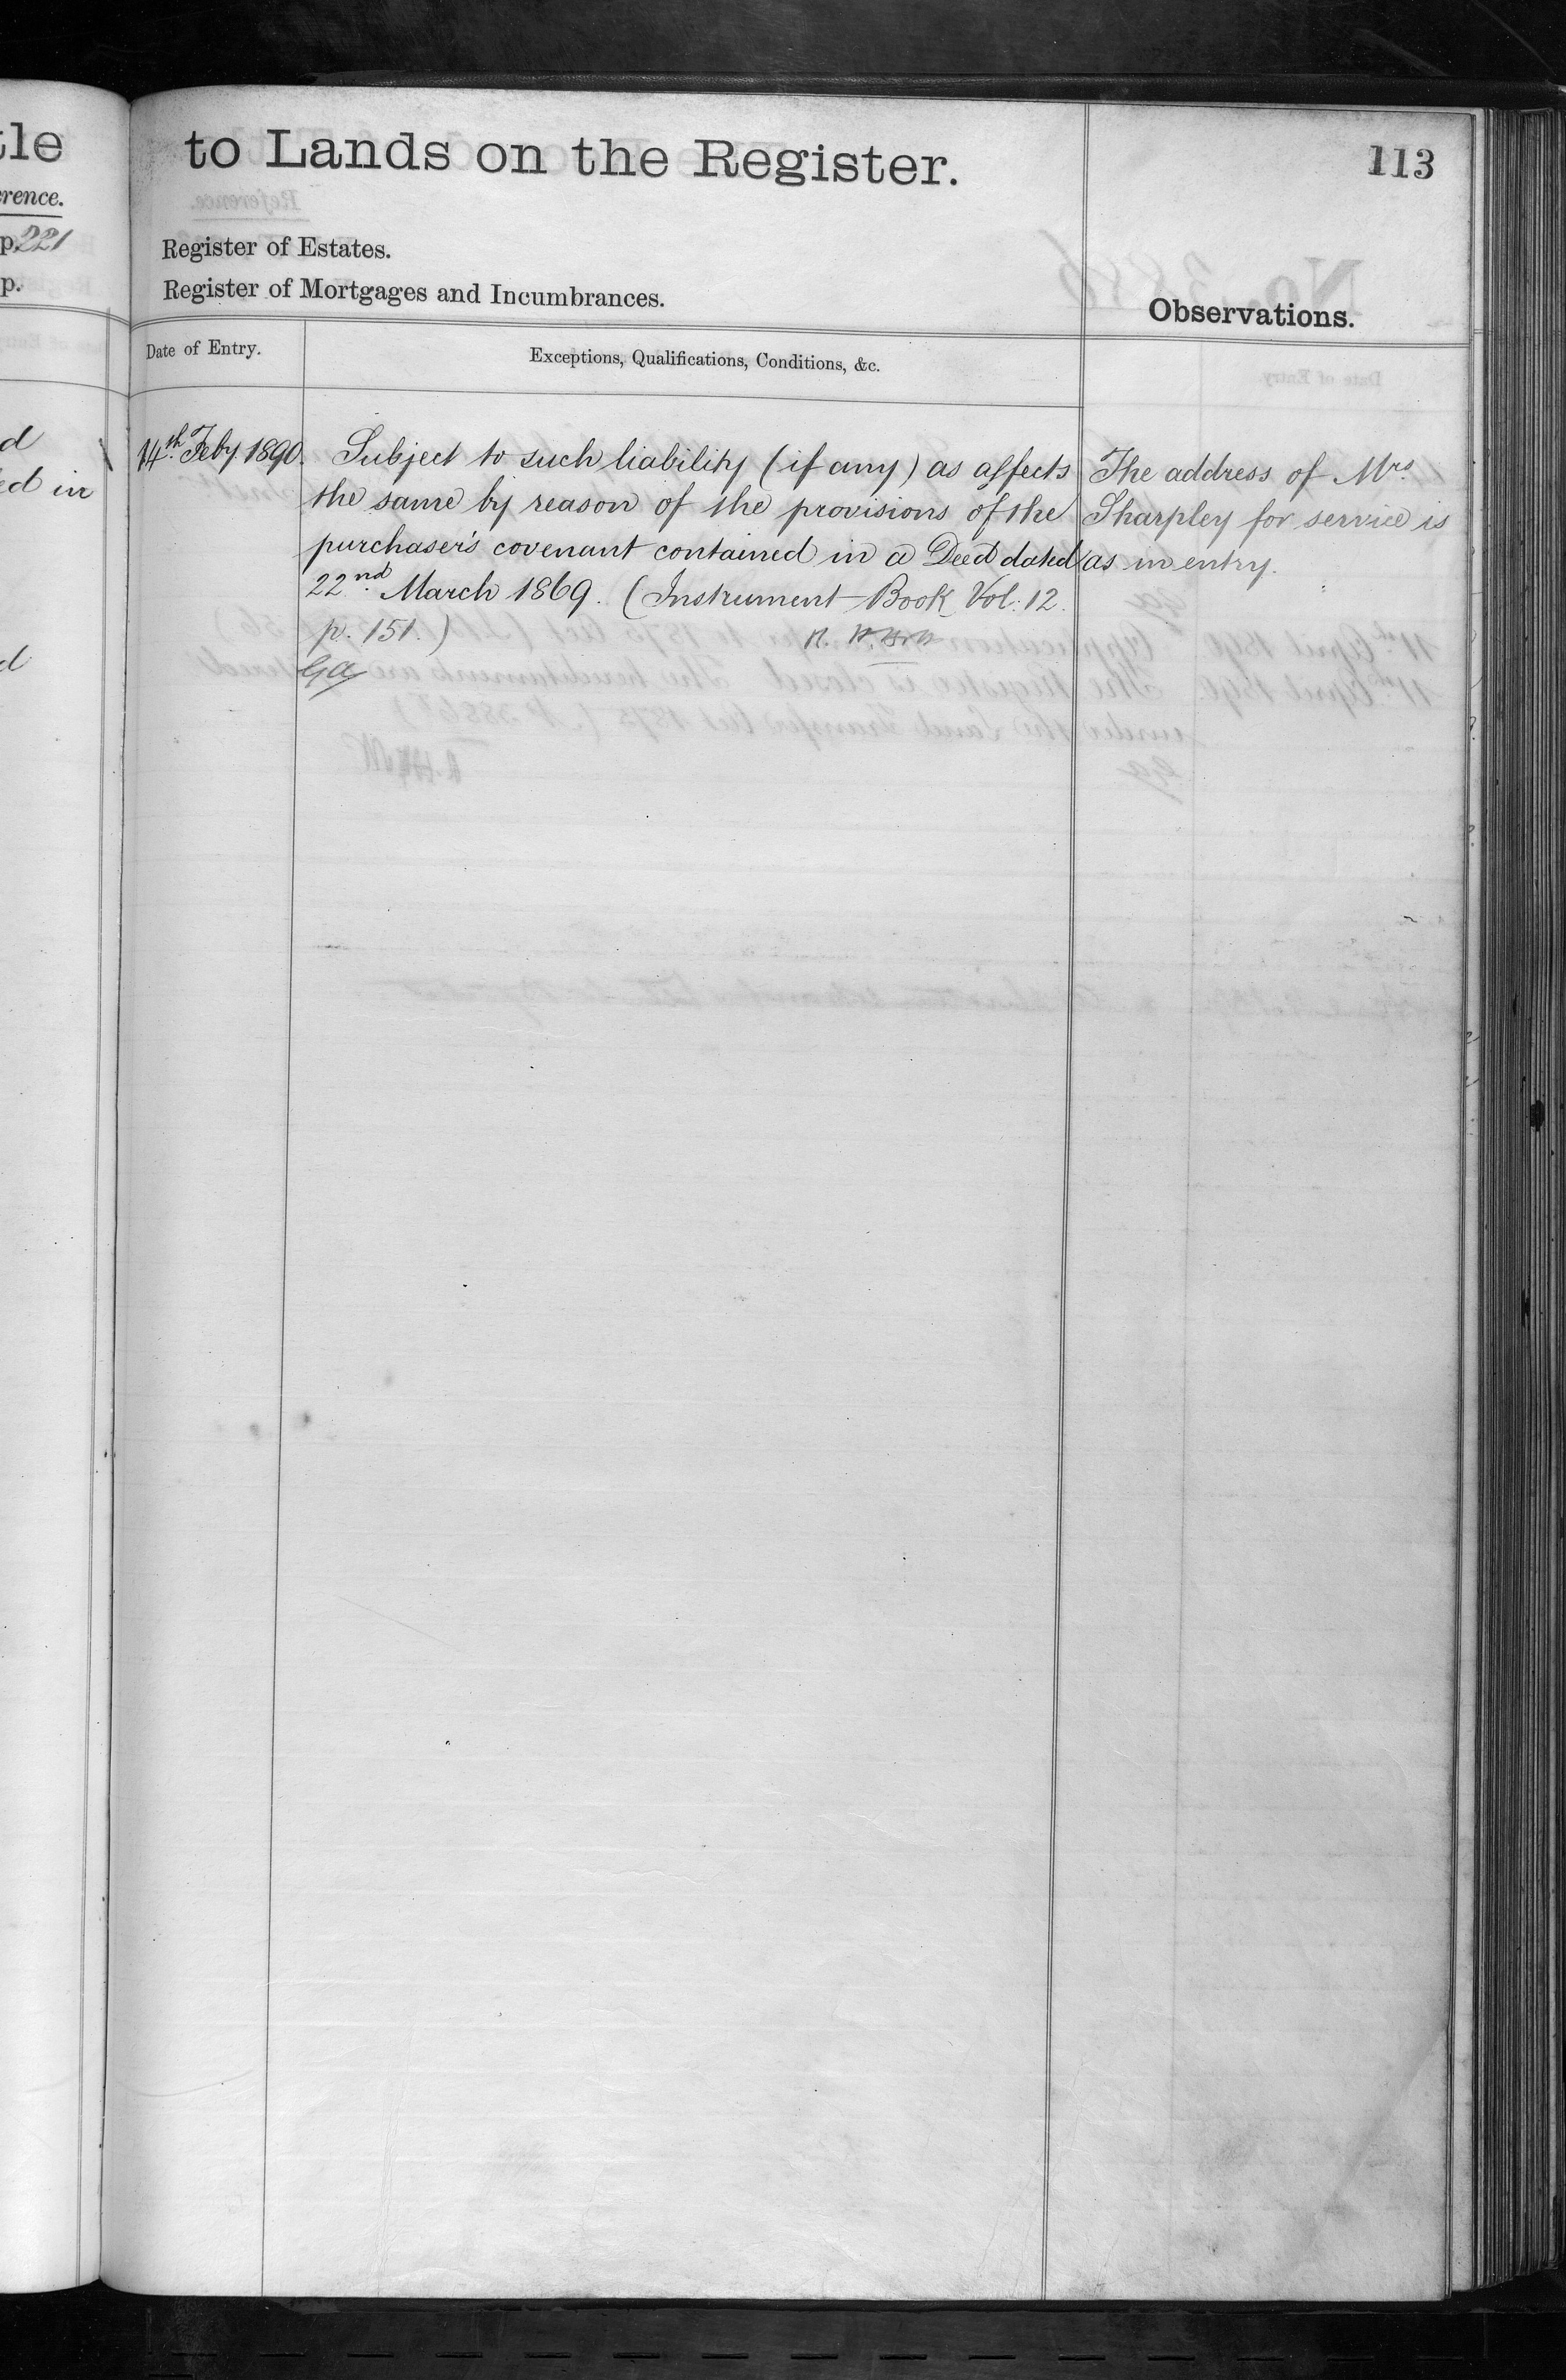 tle
erence.
p. 221
p.
d
ed in
d
to Lands on the Register.
113
Register of Estates.
Register of Mortgages and Incumbrances.
Observations.
Date of Entry.
Exceptions, Qualifications, Conditions, &c.
14th Feby 1890.
Subject to such liability (if any) as affects
the same by reason of the provisions of the
purchaser's covenant contained in a Deed dated
22nd March 1869. (Instrument Book Vol: 12.
p. 151.)
Ga
The address of Mrs
Sharpley for service is
as in entry.